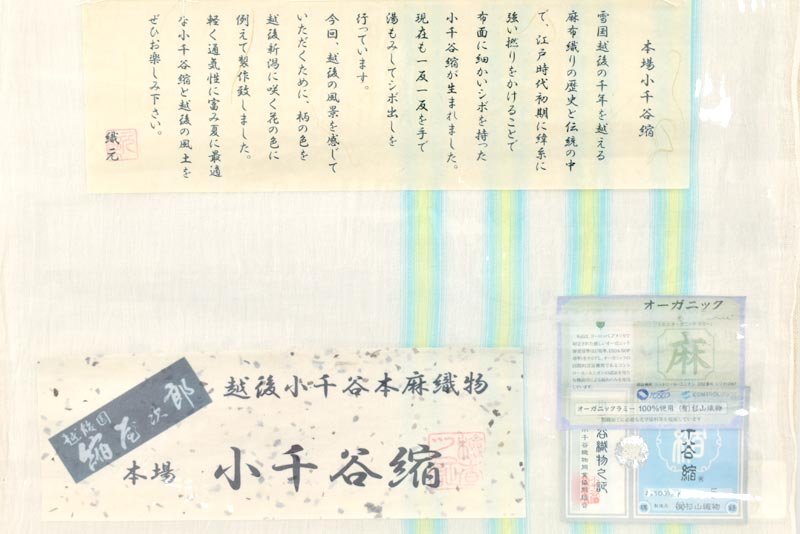 本場小千谷縮
雪国越後の千年を越える
麻布織りの歴史と伝統の中
で、江戸時代初期に緯糸に
強い撚りをかけることで
布面に細かいシボを持った
小千谷縮が生まれました。
現在も一反一反を手で
湯もみしてシボ出しを
行っています。
今回、越後の風景を感じて
いただくために、柄の色を
越後新潟に咲く花の色に
例えて製作致しました。
軽く通気性に富み夏に最適
な小千谷縮と越後の風土を
ぜひお楽しみ下さい。
織元
越後国
縮屋次郎
越後小千谷本麻織物
本場
小千谷縮
オーガニック
麻
オーガニックラミー100%使用(有)杉山織物
谷織物之証
千谷縮
杉山織物